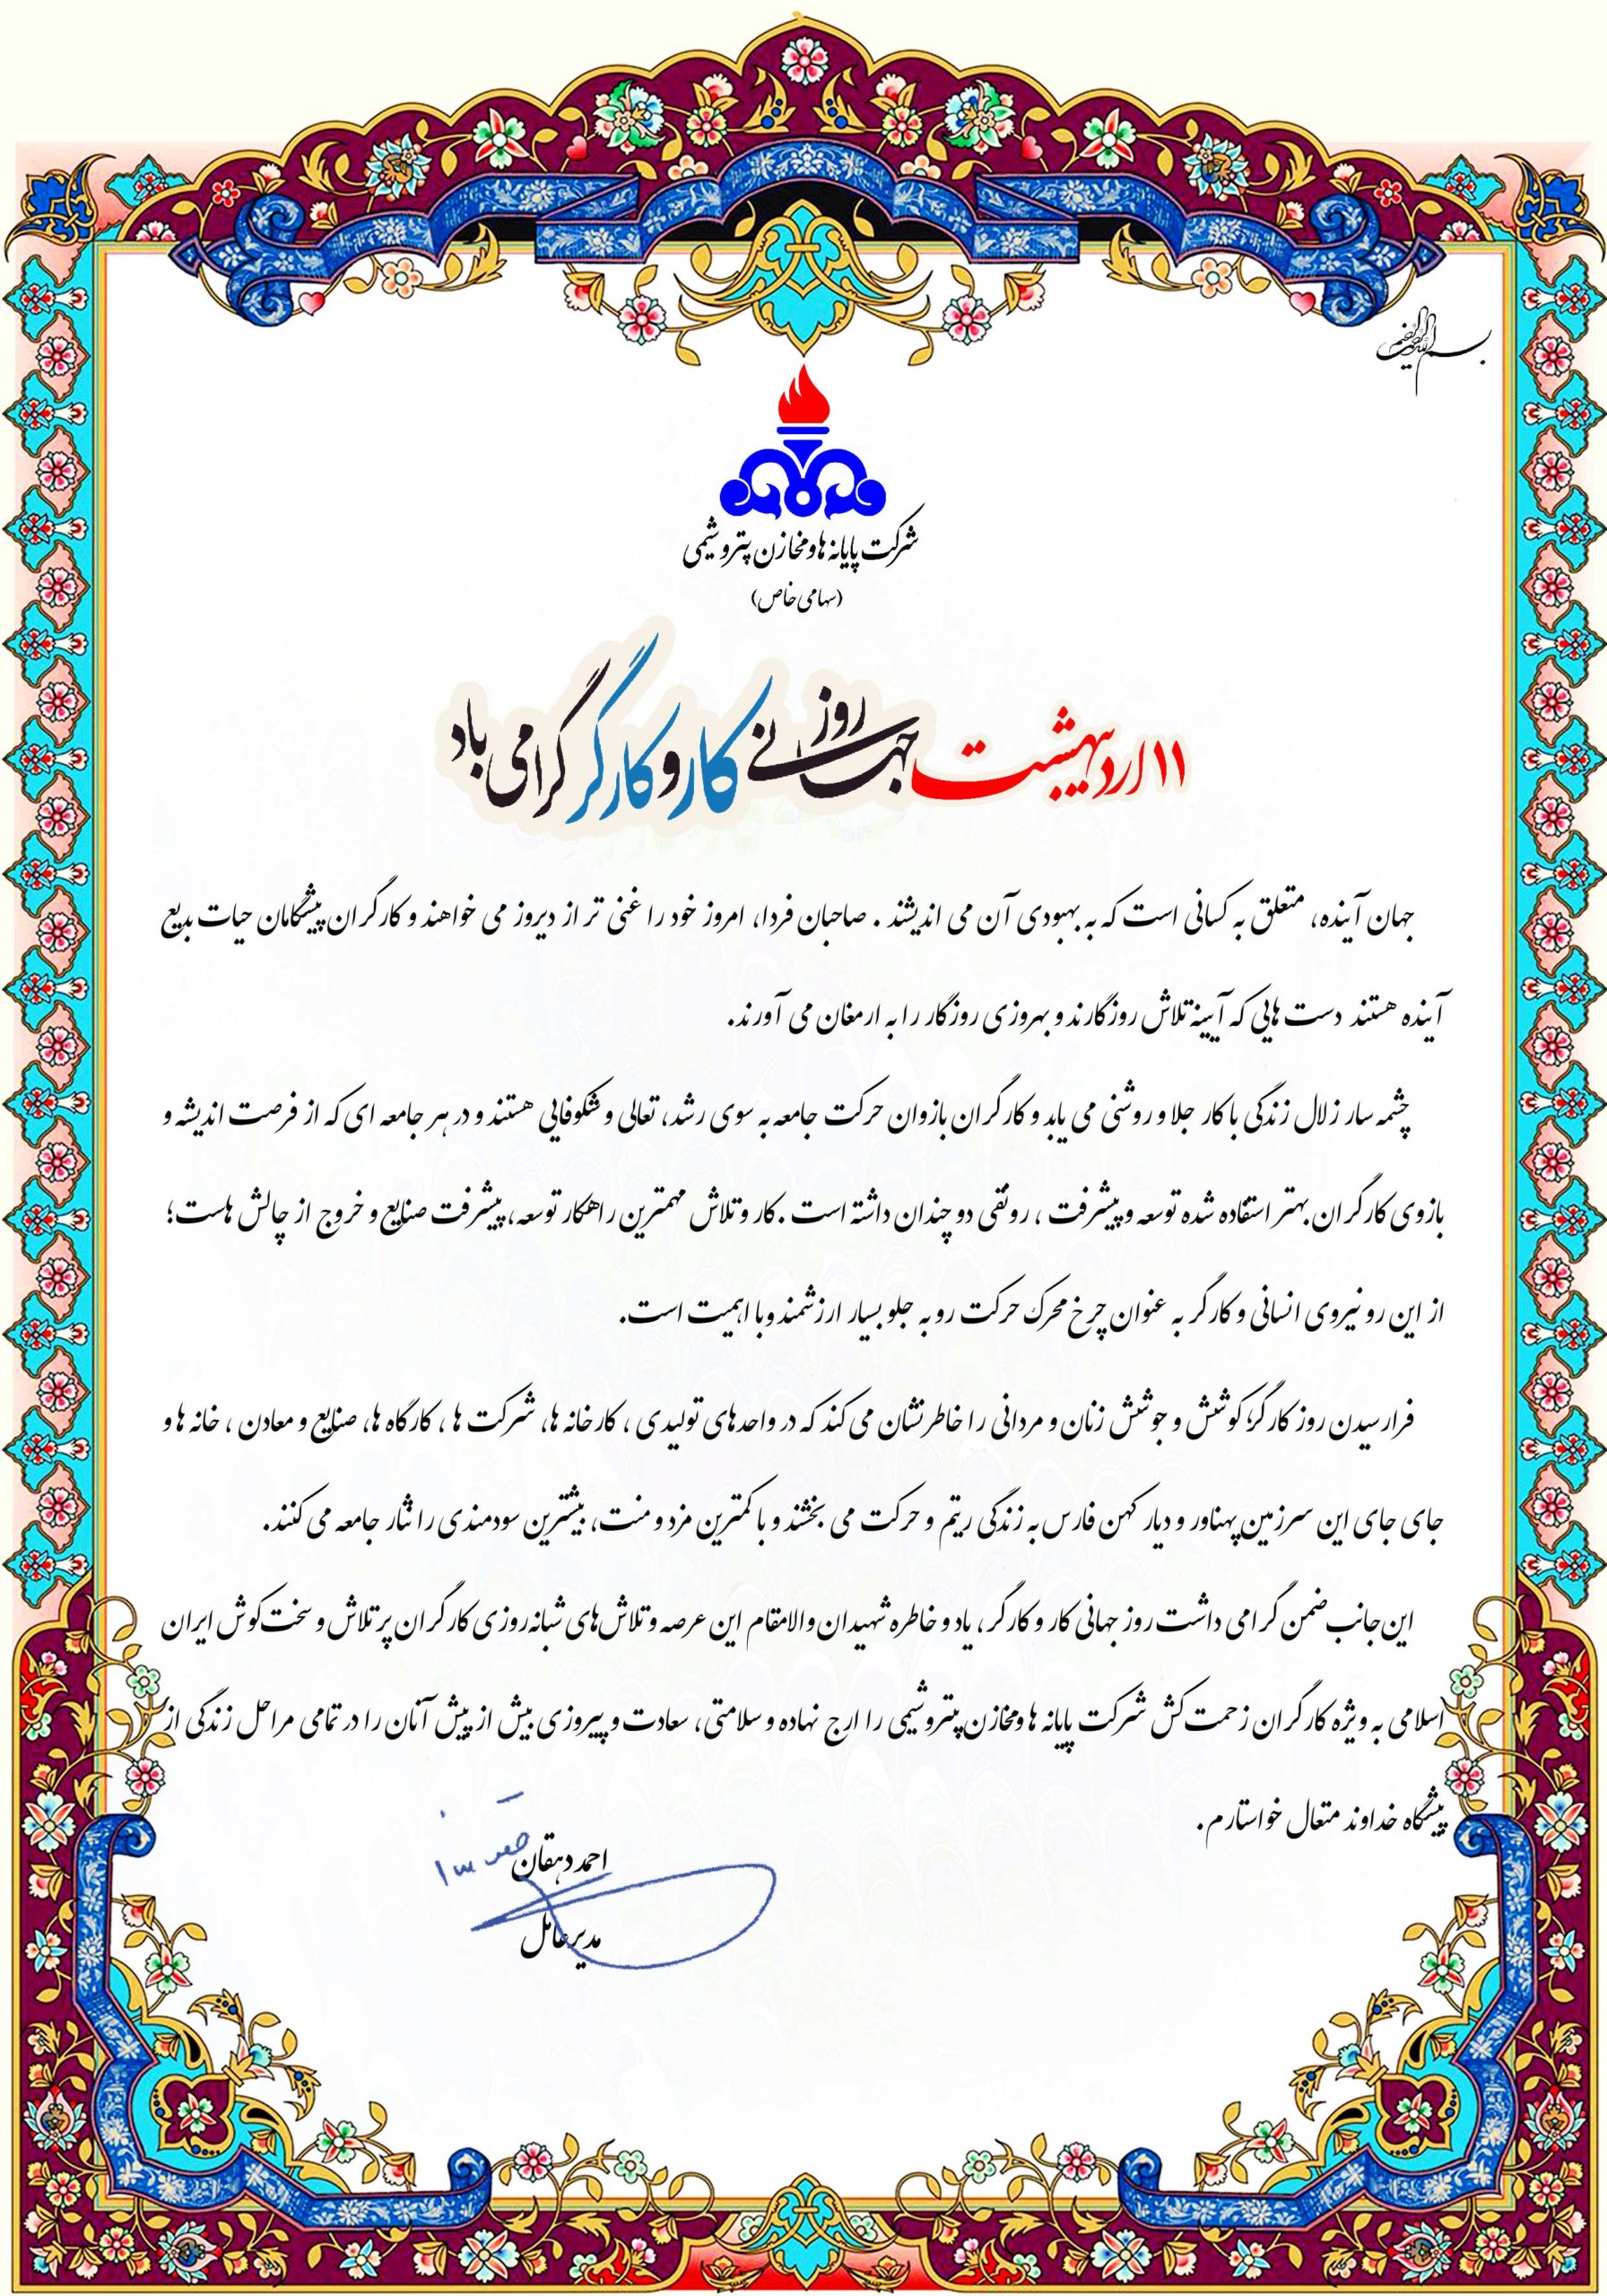 بسم الله الرحمن الرحیم
شرکت پایانه ها و مخازن پتروشیمی
(سهامی خاص)
۱۱ اردیبهشت روز جهانی کار و کارگر گرامی باد
جهان آینده، متعلق به کسانی است که به بهبودی آن می اندیشند . صاحبان فردا، امروز خود را غنی تر از دیروز می خواهند و کارگران پیشگامان حیات بدیع
آینده هستند دست هایی که آیینه تلاش روزگارند و بهروزی روزگار را به ارمغان می آورند.
چشمه سار زلال زندگی با کار جلا و روشنی می یابد و کارگران بازوان حرکت جامعه به سوی رشد، تعالی و شکوفایی هستند و در هر جامعه ای که از فرصت اندیشه و
بازوی کارگران بهتر استفاده شده توسعه و پیشرفت ، رونقی دو چندان داشته است . کار و تلاش مهمترین راهکار توسعه، پیشرفت صنایع و خروج از چالش هاست؛
از این رو نیروی انسانی و کارگر به عنوان چرخ محرک حرکت رو به جلو بسیار ارزشمند و با اهمیت است.
فرارسیدن روز کارگر، کوشش و جوشش زنان و مردانی را خاطرنشان می کند که در واحدهای تولیدی ، کارخانه ها، شرکت ها ، کارگاه ها، صنایع و معادن ، خانه ها و
جای جای این سرزمین پهناور و دیار کهن فارس به زندگی ریتم و حرکت می بخشند و با کمترین مزد و منت، بیشترین سودمندی را نثار جامعه می کنند.
این جانب ضمن گرامی داشت روز جهانی کار و کارگر ، یاد و خاطره شهیدان والامقام این عرصه و تلاش های شبانه روزی کارگران پر تلاش و سخت کوش ایران
اسلامی به ویژه کارگران زحمت کش شرکت پایانه ها و مخازن پتروشیمی را ارج نهاده و سلامتی، سعادت و پیروزی بیش از پیش آنان را در تمامی مراحل زندگی از
پیشگاه خداوند متعال خواستارم .
احمد دهقان
مدیرعامل